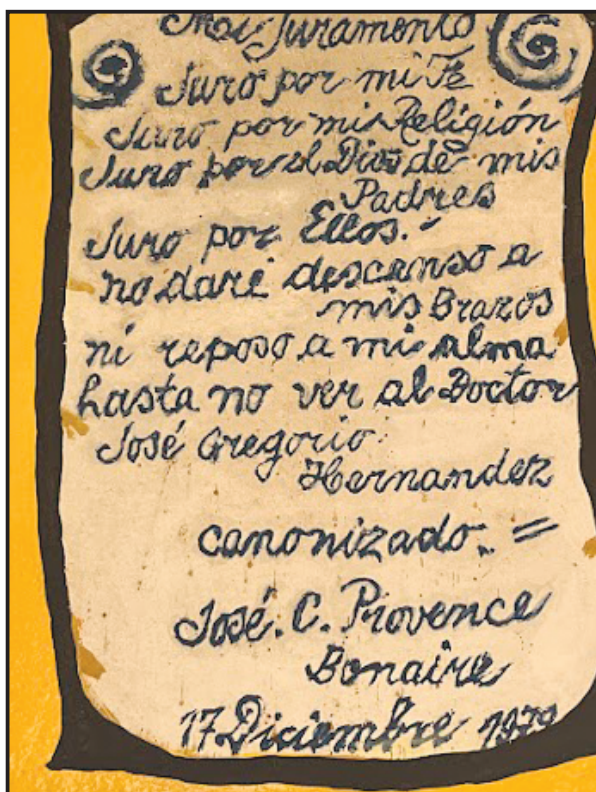 Mi Juramento
Juro por mi Fe
Juro por mi Religión
Juro por el Dios de mis
Padres
Juro por Ellos.-
no daré descanso a
mis Brazos
ni reposo a mi alma
hasta no ver al Doctor
José Gregorio
Hernandez
canonizado.. =
José. C. Provence
Bonaire
17 Diciembre 1979